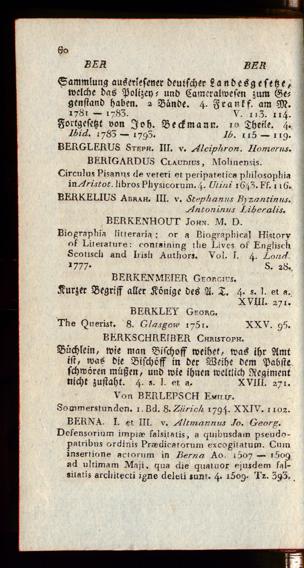 60
BER BER
Sammlung auserlesener deutscher Landesgesetze,
welche das Polizey- und Cameralwesen zum Ge-
genstand haben. 2 Bände. 4. Frankf. am M.
1781 — 1783. V. 113. 114.
Fortgesetzt von Joh. Beckmann. 10 Theile. 4.
Ibid. 1783 — 1793. Ib. 115 — 119.
BERGLERUS STEPH. III. v. Alciphron. Homerus.
BERIGARDUS CLAUDIUS, Molinensis.
Circulus Pisanus de veteri et peripatetica philosophia
in Aristot. libros Physicorum. 4. Utini 1643. Ff. 116.
BERKELIUS ABRAH. III. v. Stephanus Byzantinus.
Antoninus Liberalis.
BERKENHOUT JOHN. M. D.
Biographia litteraria; or a Biographical History
of Literature: containing the Lives of Englisch
Scotisch and Irish Authors. Vol. I. 4. Lond.
1777. S. 28.
BERKENMEIER GEORGIUS.
Kurzer Begriff aller Könige des A. T. 4. s. l. et a.
XVIII. 271.
BERKLEY GEORG.
The Querist. 8. Glasgow 1751. XXV. 95.
BERKSCHREIBER CHRISTOPH.
Büchlein, wie man Bischoff weihet, was ihr Amt
ist, was die Bischöff in der Weihe dem Pabste
schwören müßen, und wie ihnen weltlich Regiment
nicht zustaht. 4. s. l. et a. XVIII. 271.
Von BERLEPSCH EMILIE.
Sommerstunden. 1. Bd. 8. Zürich 1794. XXIV. 1102.
BERNA. I. et III. v. Altmannus Jo. Georg.
Defensorium impiæ falsitatis, a quibusdam pseudo-
patribus ordinis Prædicatorum excogitatum. Cum
insertione actorum in Berna Ao. 1507 — 1509
ad ultimam Maji, qua die quatuor ejusdem fal-
sitatis architecti igne deleti sunt. 4. 1509. Tz. 393.